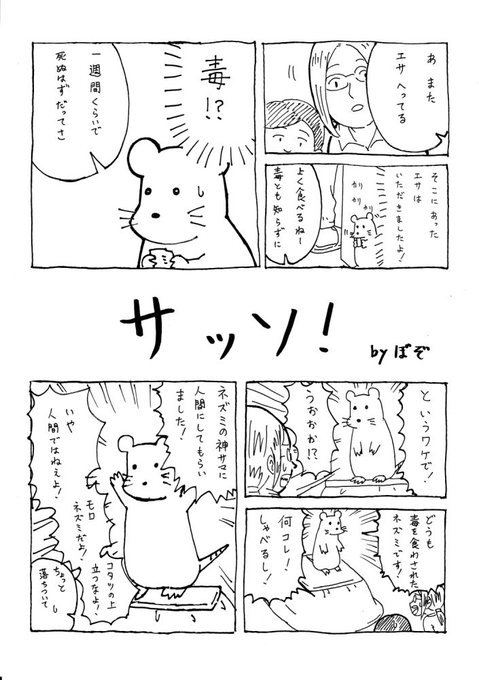 あ また
エサ へってる
そこにあった
エサは
いただきましたよ!
カリ
カリ
カリ
よく食べるねー
毒とも知らずに
毒!?
一週間くらいで
死ぬはずだってさ
サッソ!
by ぼぞ
というワケで!
うおおお!?
どうも
毒を食わされた
ネズミです!
何コレ!
しゃべるし!
ネズミの神サマに
人間にしてもらい
ました!
いや
人間ではねえよ!
モロ
ネズミだよ!
コタツの上
立つなよ!
ちょっと
落ちついて